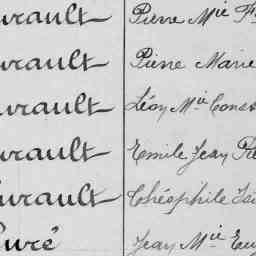 urault Pierre Mie
urault Pierre Marie
urault Léon Mie Const
urault Emile Jean
urault Théophile
uré Jean Mie Eug